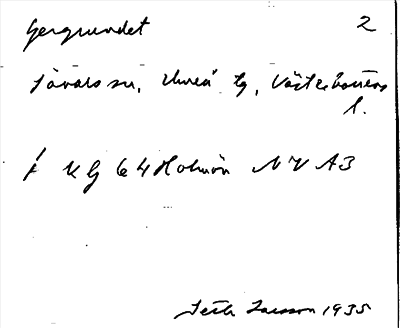 Gergrundet 2
Sävars sn, Umeå tg, Västerbottens
l.
KG 64 Holmön NV A3
Larsson 1935